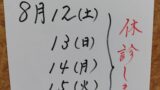 8月12(土)
13(日)
14(月)
15(火)
休診し